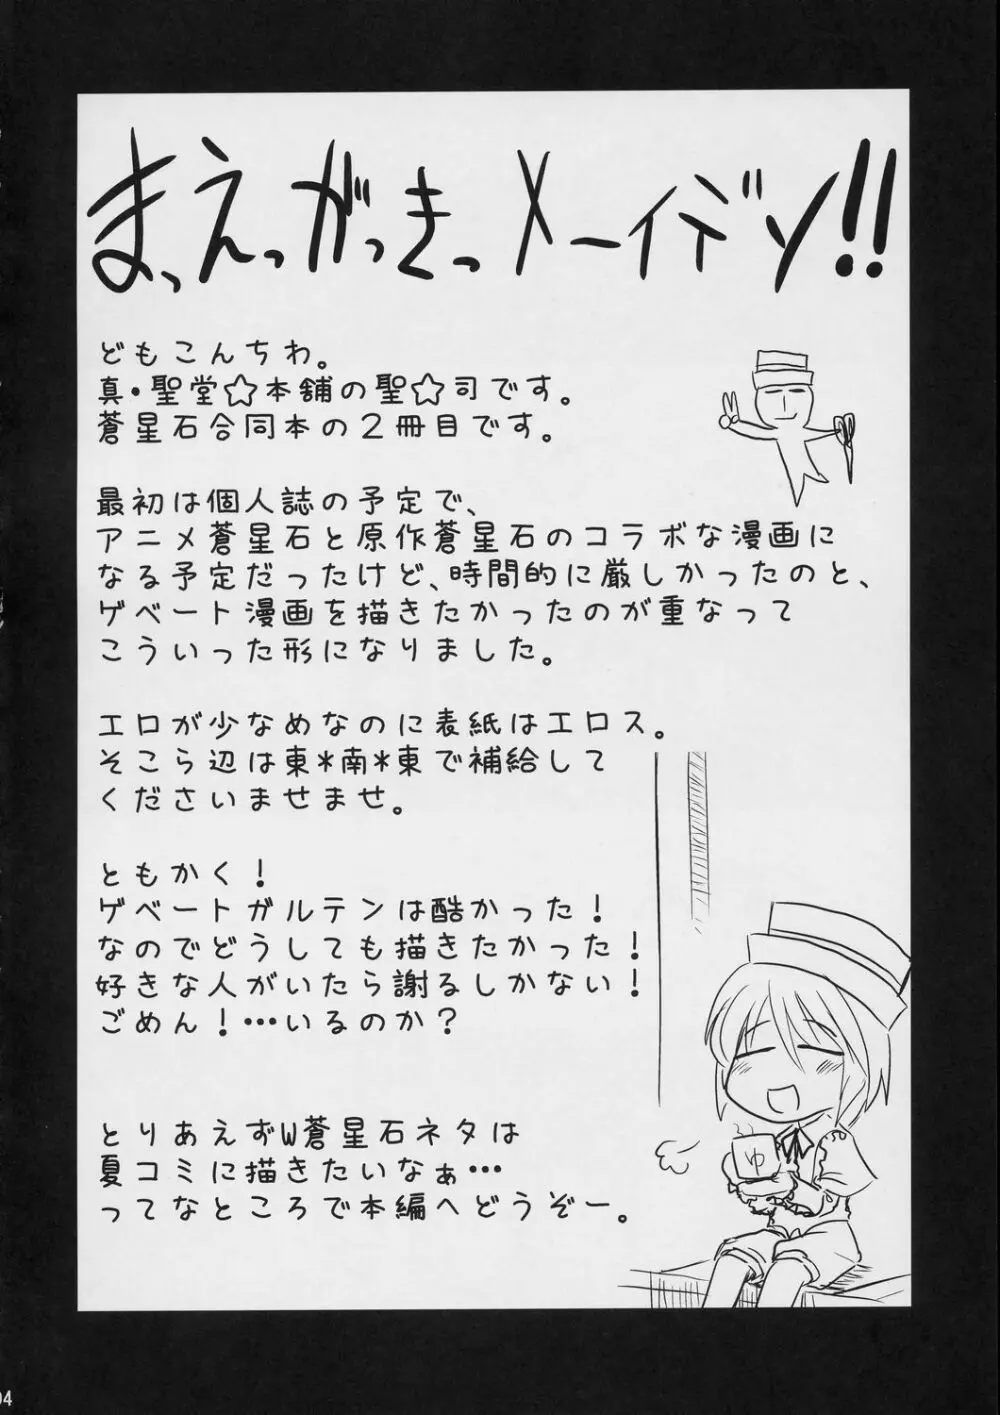 まっえっがっきっメーイデン!!
どもこんちわ。
真・聖堂☆本舗の聖☆司です。
蒼星石合同本の2冊目です。
最初は個人誌の予定で、
アニメ蒼星石と原作蒼星石のコラボな漫画に
なる予定だったけど、時間的に厳しかったのと、
ゲベート漫画を描きたかったのが重なって
こういった形になりました。
エロが少なめなのに表紙はエロス。
そこら辺は東*南*東で補給して
くださいませませ。
ともかく!
ゲベートガルテンは酷かった!
なのでどうしても描きたかった!
好きな人がいたら謝るしかない!
ごめん!…いるのか?
ゆ
とりあえずW蒼星石ネタは
夏コミに描きたいなぁ…
ってなところで本編へどうぞー。
04